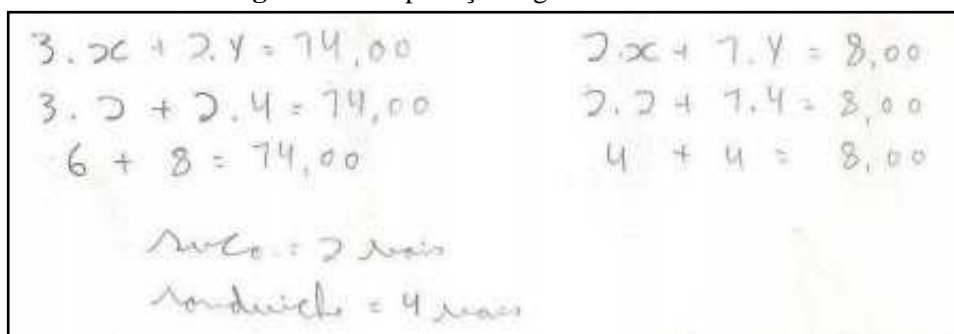 3.x + 2.y = 14,00
3.2 + 2.4 = 14,00
6 + 8 = 14,00
2.x + 1.y = 8,00
2.2 + 1.4 = 8,00
4 + 4 = 8,00
suco = 2 reais
sanduiche = 4 reais